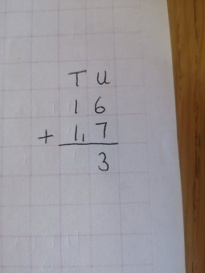 T U
1 6
+ 1, 7
3